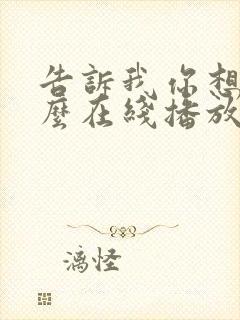 告訴我你想
麼在綫播放
漓怪